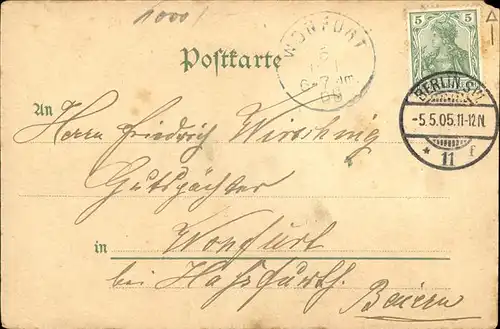 1000/
Postkarte
WONFURT
5
BERLIN S.W.
-5.5.05.11-12N.
* 11 f
An
Herrn Friedrich Wirsching
Gutspächter
in Wonfurt
bei Hassfurth.
Baiern